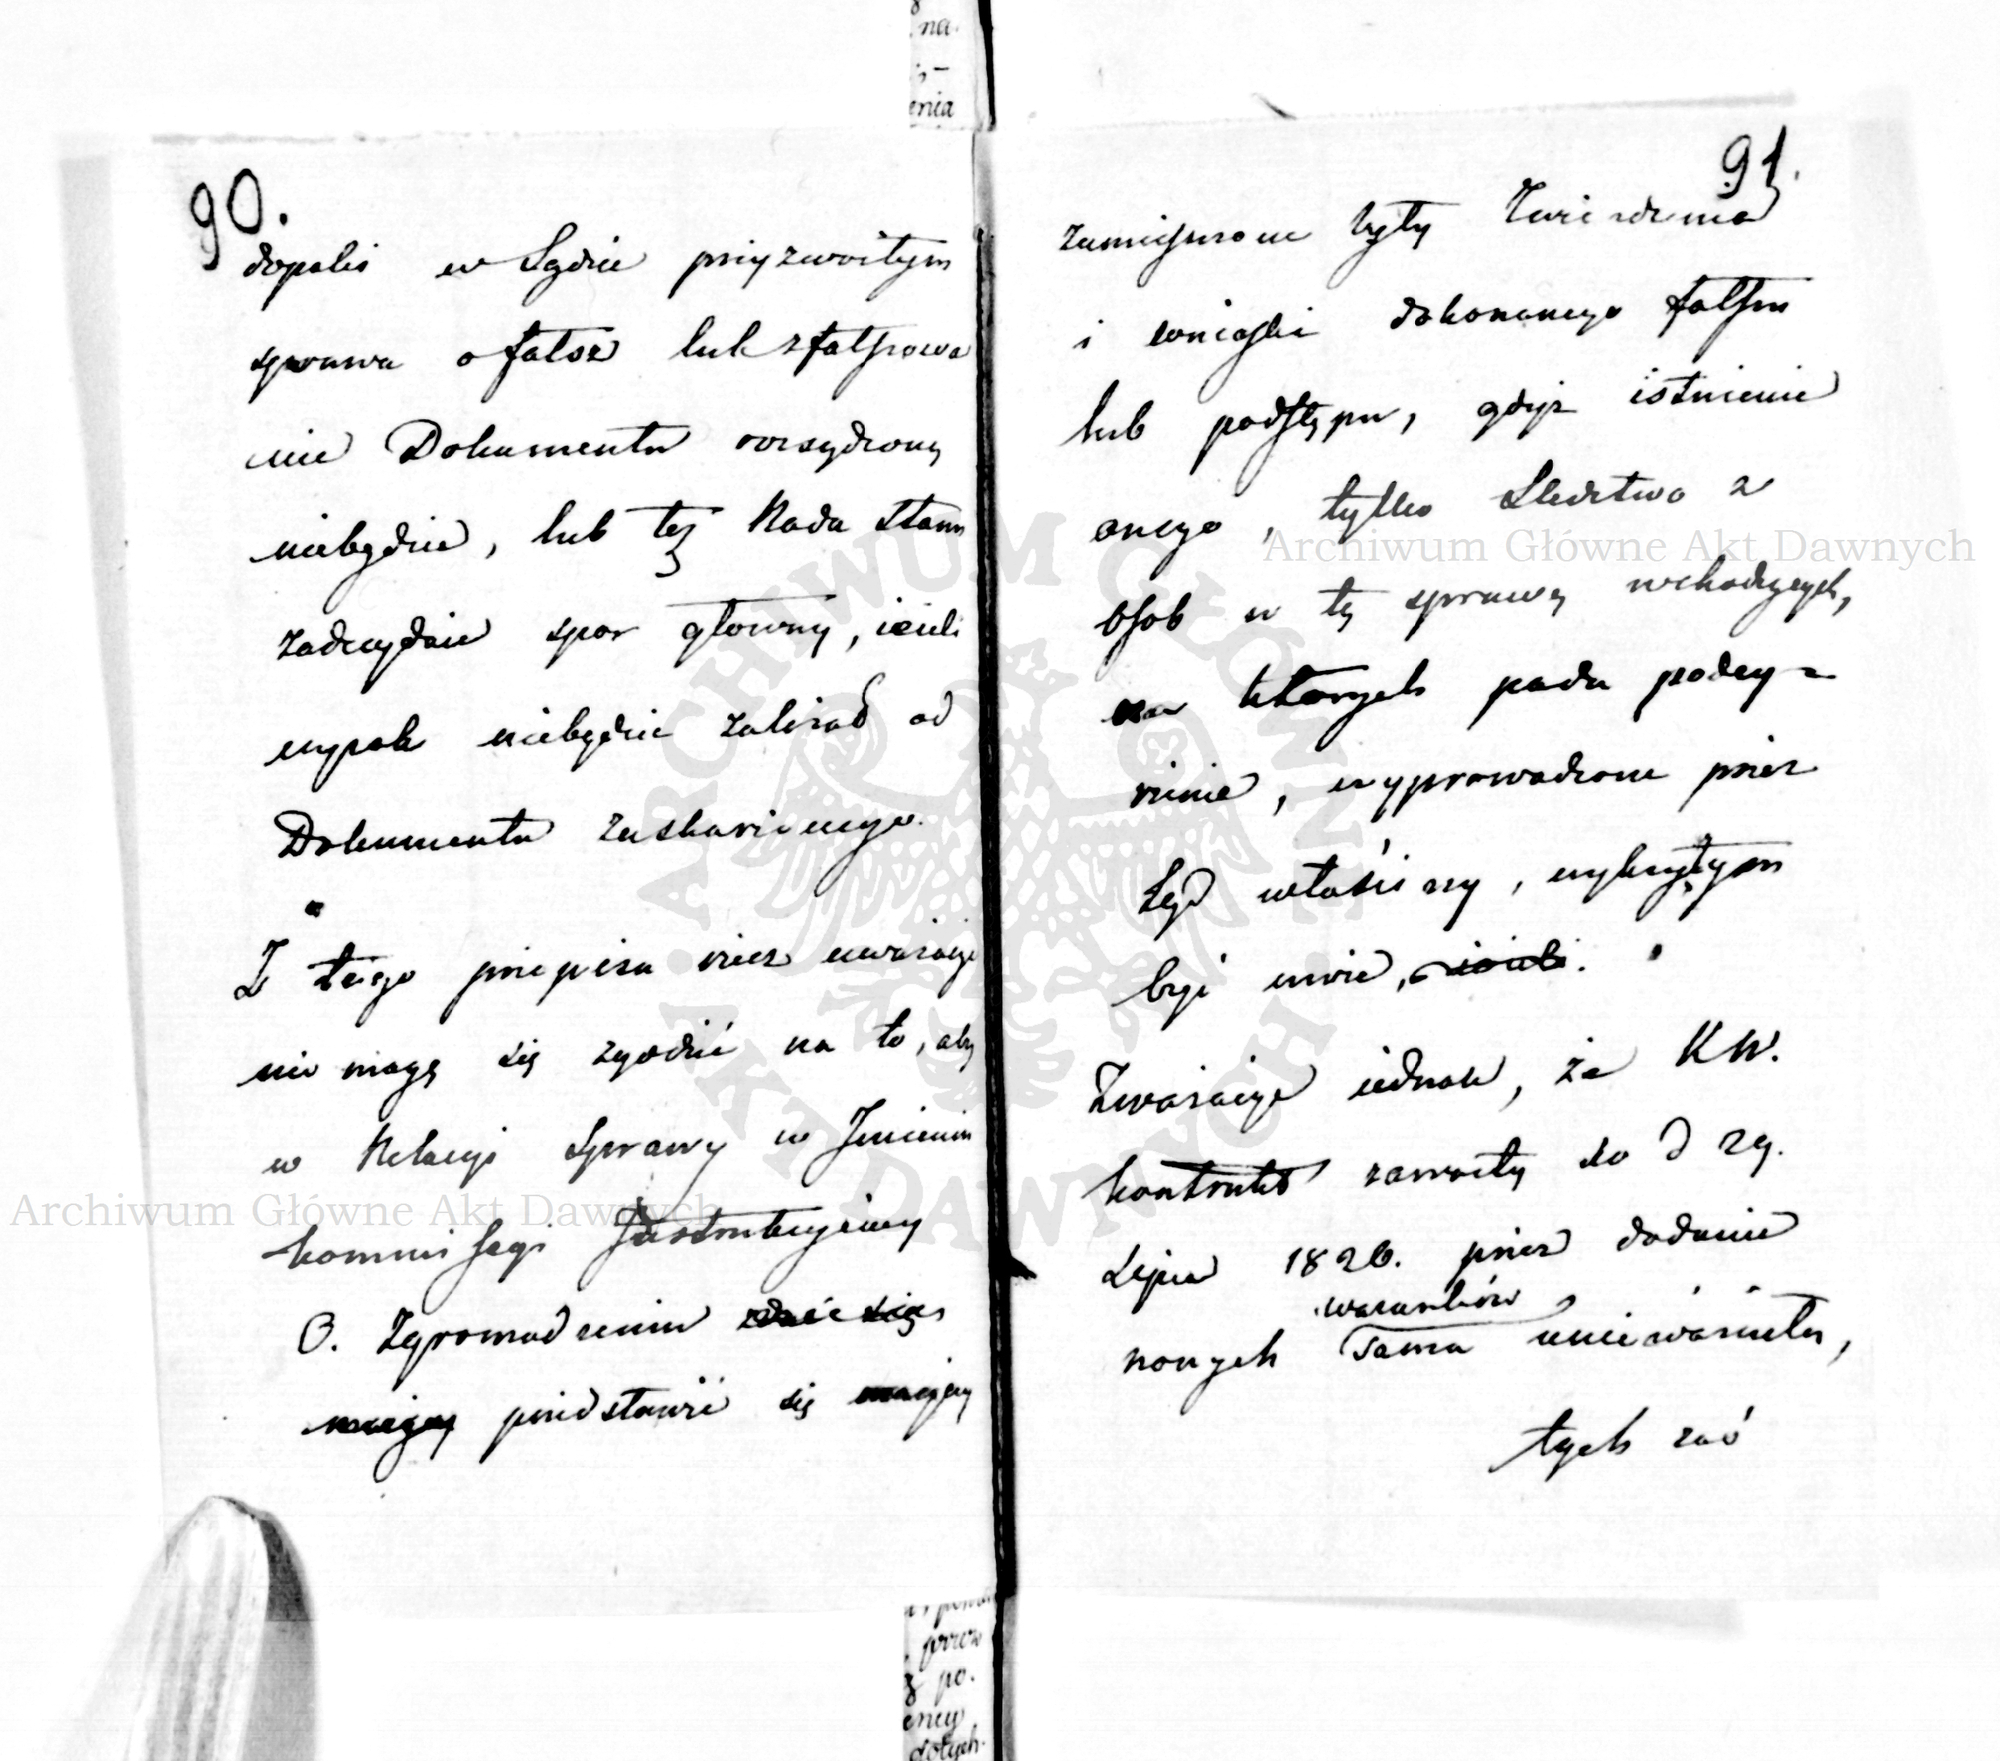 90.
dopoki w Sądzie przyzwoitym
sprawa o fałsz lub sfałszowa
nie Dokumentu rozsądzoną
niebędzie, lub też Rada Stanu
zadecyduie spor główny, ieżeli
wyrok niebędzie zależał od
Dokumentu zaskarżonego.
Z tego przepisu rzecz uważając
nie mogę się zgodzić na to, aby
w Relacyi Sprawy w Imieniu
kommissyi Instrukcyiney
O. Zgromadzeniu
przedstawić się maiącey
91.
zamieszczone były Twierdzenia
i wnioski dokonanego fałszu
lub podstępu, gdyż istnienie
onego, tylko Śledztwo z
Osob w tę sprawę wchodzących,
na ktorych pada podey-
rzenie, wyprowadzone przez
Sąd właściwy, wykrytym
być może, ieżeli.
Zważając iednak, że KW.
kontrakt zawarty do d 29.
Lipca 1826. przez dodanie
warunków
nowych sama unieważniła,
tych zaś
Archiwum Główne Akt Dawnych
Archiwum Główne Akt Dawnych
ARCHIWUM GŁÓWNE AKT DAWNYCH